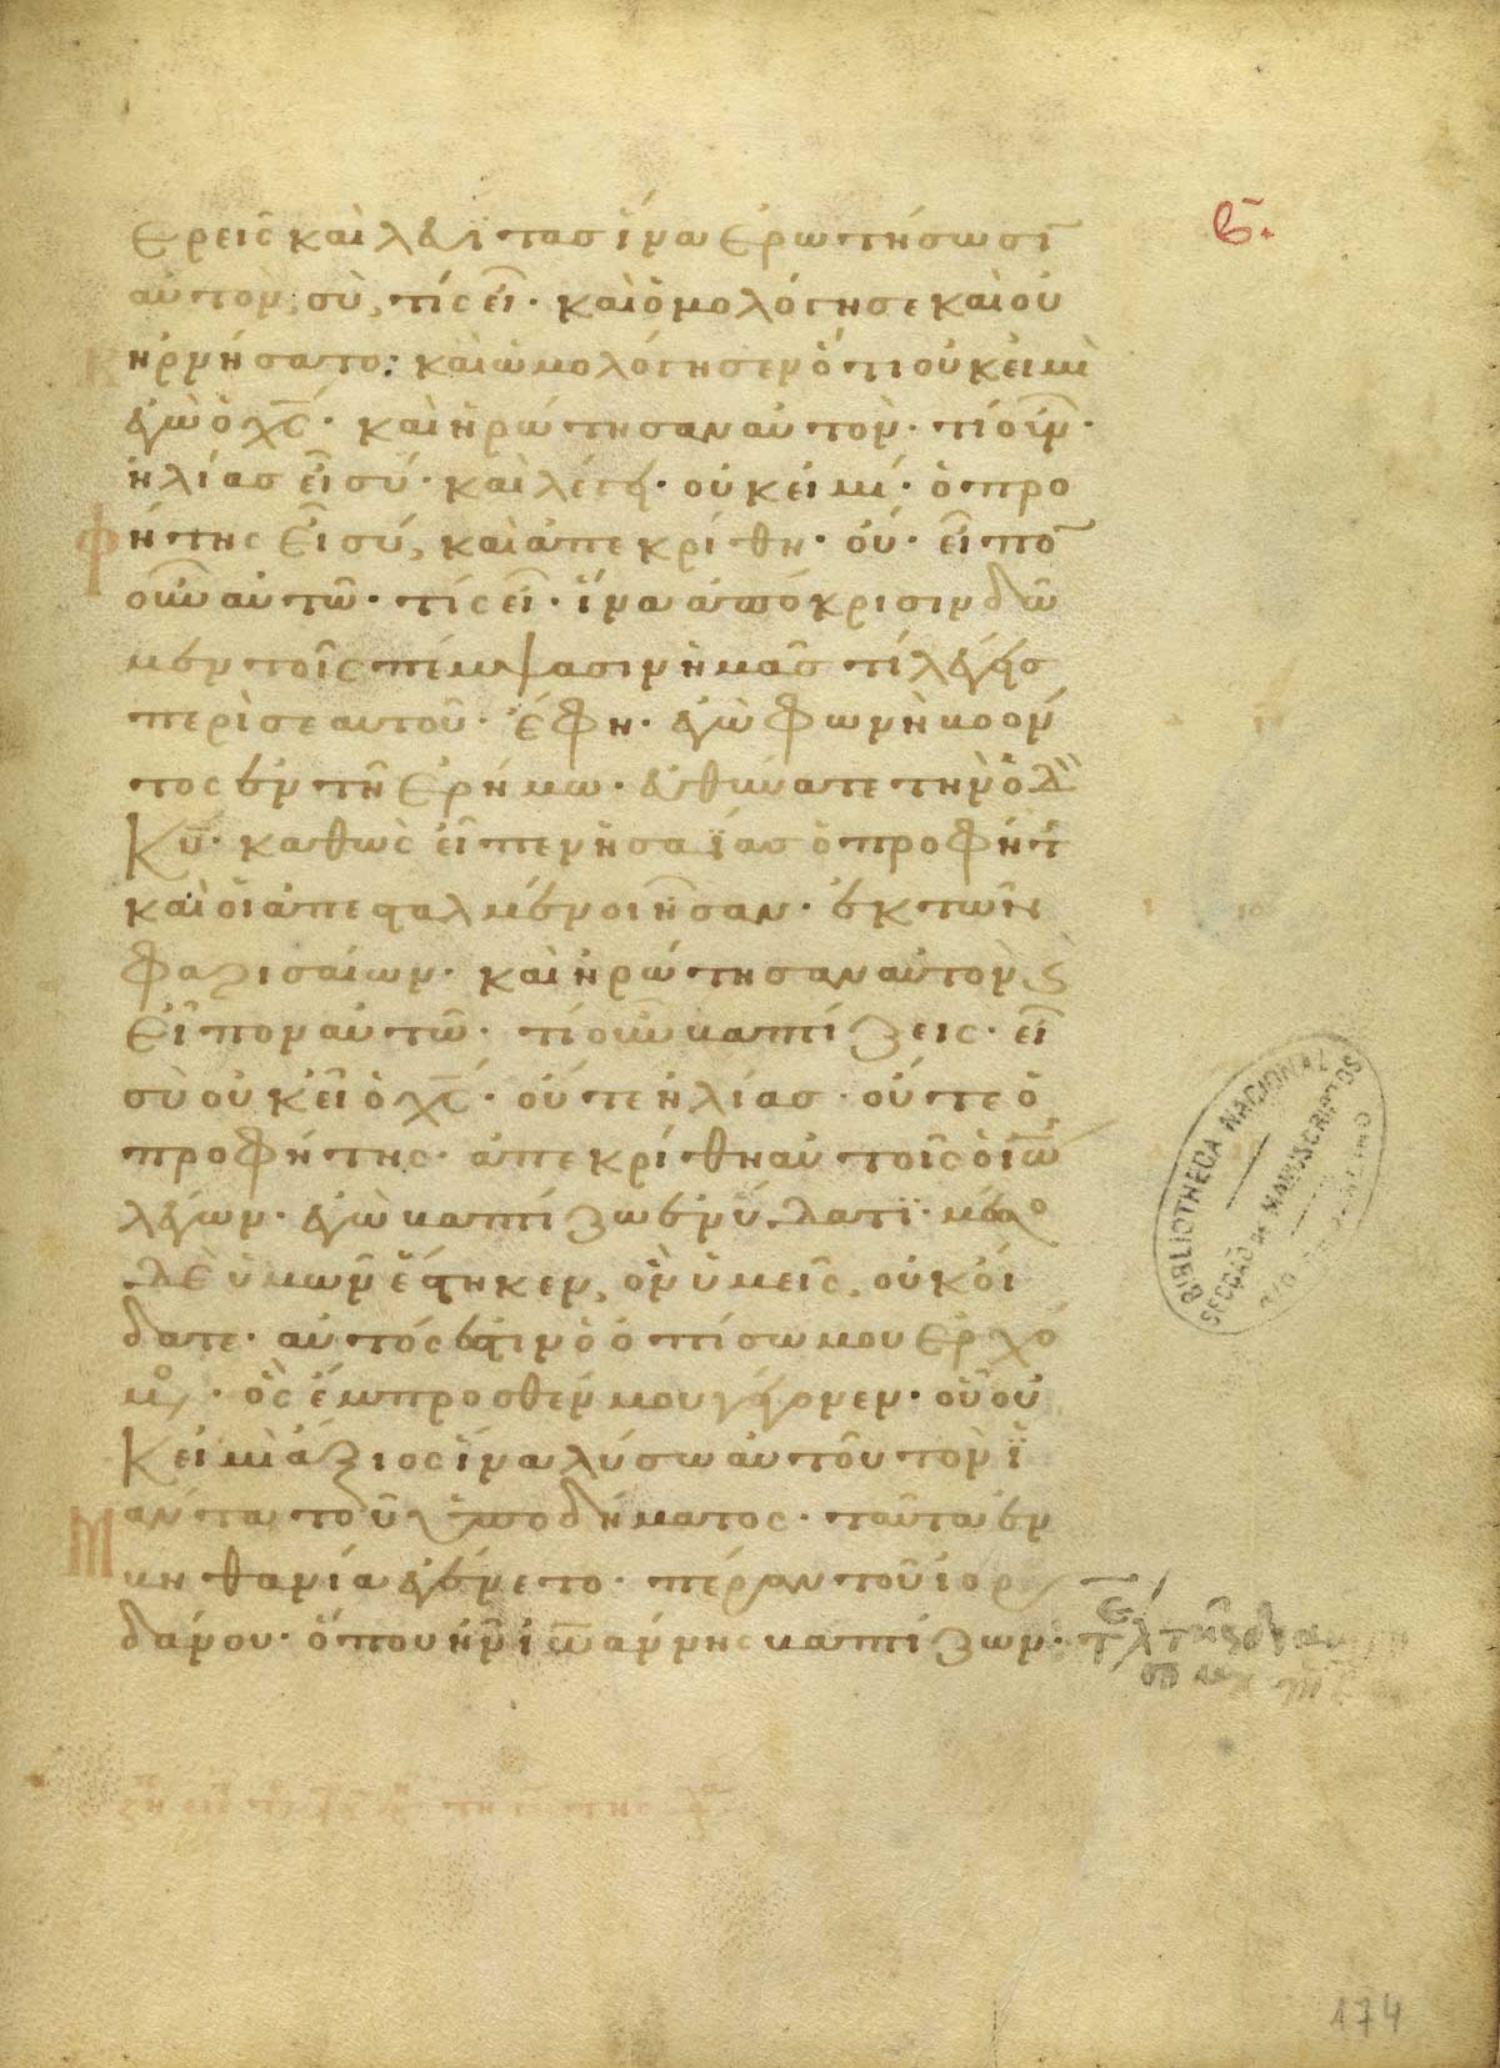 β.
ερεῖς καὶ λευΐτας ἵνα ἐρωτήσωσῑ
αὐτὸν, σὺ, τίς εἶ· καὶ ὁμολόγησε καὶ οὐ
ηρνήσατο: καὶ ὡμολόγησεν ὅτι οὐκ εἰμὶ
ἐγὼ ὁ χ̅ς̅· καὶ ἠρώτησαν αὐτὸν· τί οὖν·
ἠλίας εἶ σύ· καὶ λέγει· οὐκ εἰμί· ὁ προ
φήτης εἶ σύ, καὶ ἀπεκρίθη· οὔ· εἶπο̅
οὖν αὐτῶ· τίς εἶ· ἵνα ἀπόκρισιν δῶ
μεν τοῖς πέμψασιν ἡμᾶς τί λέγεις
περὶ σεαυτοῦ· ἔφη· ἐγὼ φωνὴ βοόν
τος ἐν τῆ ἐρήμω· εὐθύνατε τὴν ὁδ
κ̅υ̅· καθὼς εἶπεν ἡσαΐας ὁ προφήτ
καὶ οἱ ἀπεσταλμένοι ἦσαν· ἐκ τῶν
φαρισαίων· καὶ ἠρώτησαν αὐτὸν ϗ
εἶπον αὐτῶ· τί οὖν βαπτίζεις· εἶ
σὺ οὐκ εἶ ὁ χ̅ς̅· οὔτε ἠλίας· οὔτε ὁ
προφήτης· ἀπεκρίθη αὐτοῖς ὁ ἰω̅
λέγων· ἐγὼ βαπτίζω ἐν ὕδατι· μέσο
δὲ ὑμῶν ἕστηκεν, ὃν ὑμεῖς, οὐκ οί
δατε· αὐτός ἐστιν ὁ ὀπίσω μου ἐρχό
μ· ὃς ἔμπροσθέν μου γέγονεν· οὗ οὐ
κ εἰμὶ ἄξιος ἵνα λύσω αὐτοῦ τὸν ϊ
μάντα τοῦ ὑποδήματος· ταῦτα ἐν
βηθανία ἐγένετο· πέραν τοῦ ἰορ
δάνου· ὅπου ἦν ἰω̅άννης βαπτίζων·
BIBLIOTHECA NACIONAL
SECÇÃO DE MANUSCRIPTOS
RIO DE JANEIRO
174